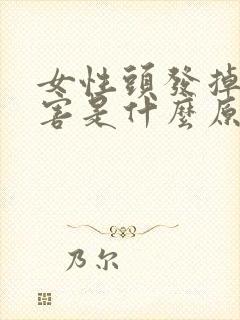 女性頭發掉
害是什麼原
乃尔